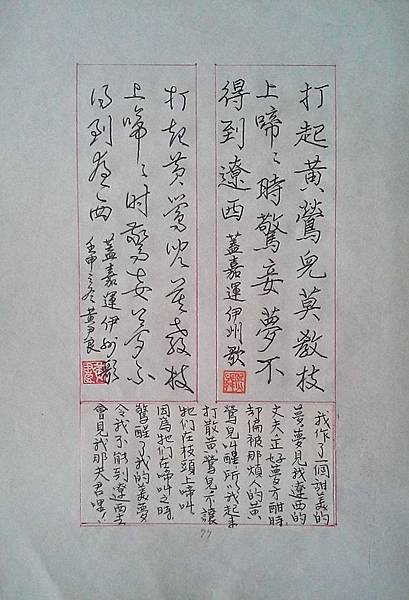 打起黃鶯兒莫教枝
上啼〻時驚妾夢不
得到遼西 蓋嘉運伊州歌
打起黃鶯兒莫教枝
上啼〻时驚妾夢不
得到遼西 蓋嘉運伊州歌
壬申之冬黃良
我作了一個甜美的
夢夢見我遼西的
丈夫正好夢方酣時
却偏被那煩人的黃
鶯兒叫醒所以我起來
打散黃鶯兒不讓
牠們在枝頭上啼叫
因為牠們在啼叫之時
驚醒了我的美夢
令我不能到遼西去
會見我那夫君哩！